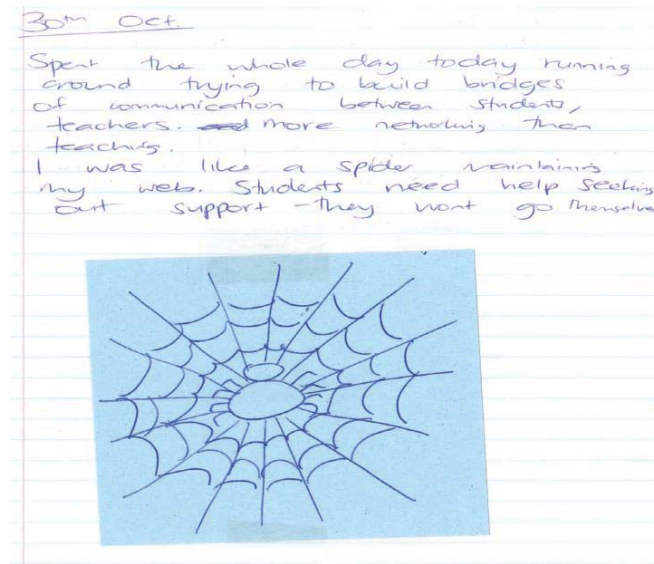 30th Oct.
Spent the whole day today running
around trying to build bridges
of communication between students,
teachers. more networking than
teaching.
I was like a spider maintaining
my web. Students need help seeking
out support - they wont go themselves